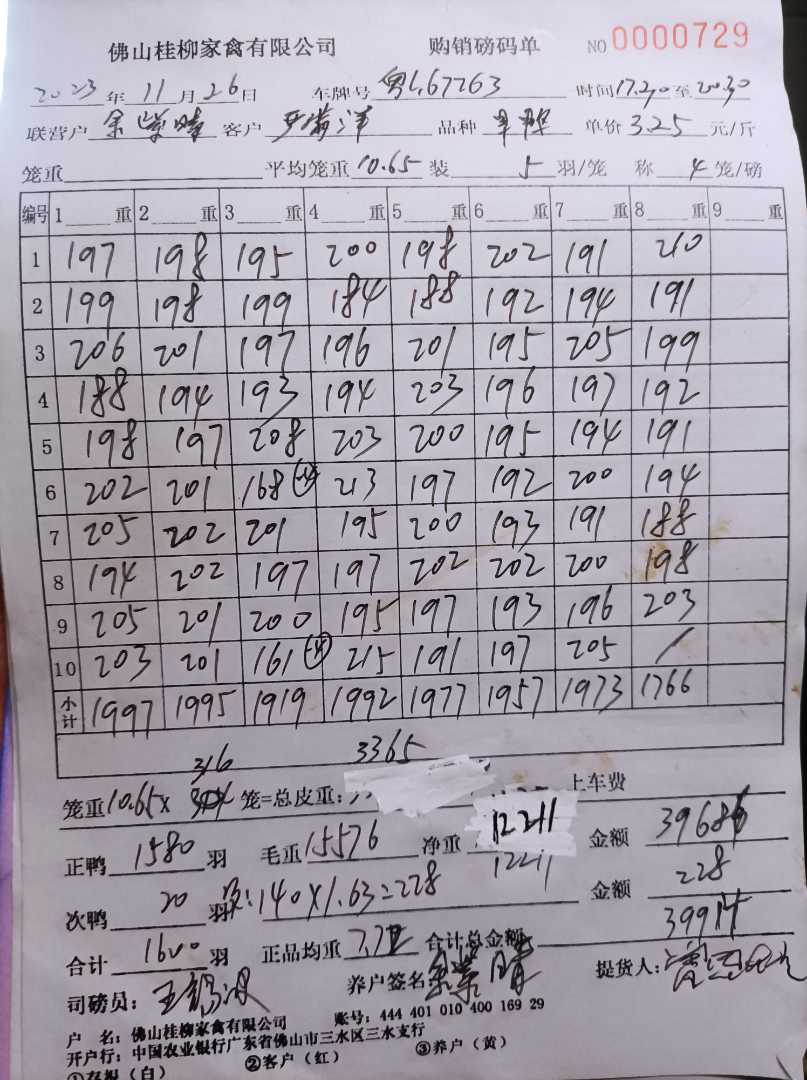 佛山桂柳家禽有限公司 购销磅码单 NO 0000729
2023年11月26日 车牌号 粤L67263 时间17.20至20.30
联营户 余 晴 客户 洋 品种 单价 3.25 元/斤
笼重 平均笼重10.65装 5 羽/笼 称 4 笼/磅
编号 1 重 2 重 3 重 4 重 5 重 6 重 7 重 8 重 9 重
1 197 198 195 200 198 202 191 210
2 199 198 199 184 188 192 194 191
3 206 201 197 196 201 195 205 199
4 188 194 193 194 203 196 197 192
5 198 197 208 203 200 195 194 191
6 202 201 168 213 197 192 200 194
7 205 202 201 195 200 193 191 188
8 194 202 197 197 202 202 200 198
9 205 201 200 195 197 193 196 203
10 203 201 161 215 191 197 205 /
小计 1997 1995 1919 1992 1977 1957 1973 1766
316 3365
笼重10.65× 笼=总皮重: 上车费
正鸭 1580 羽 毛重15576 净重 12211 金额 39686
12211
次鸭 20 羽 :140×1.63=228 金额 228
合计 1600 羽 正品均重 7.72 合计总金额 39914
司磅员: 王锡 养户签名: 余 晴 提货人:
户 名: 佛山桂柳家禽有限公司 账号: 444 401 010 400 169 29
开户行: 中国农业银行广东省佛山市三水区三水支行
①存根(白) ②客户(红) ③养户(黄)